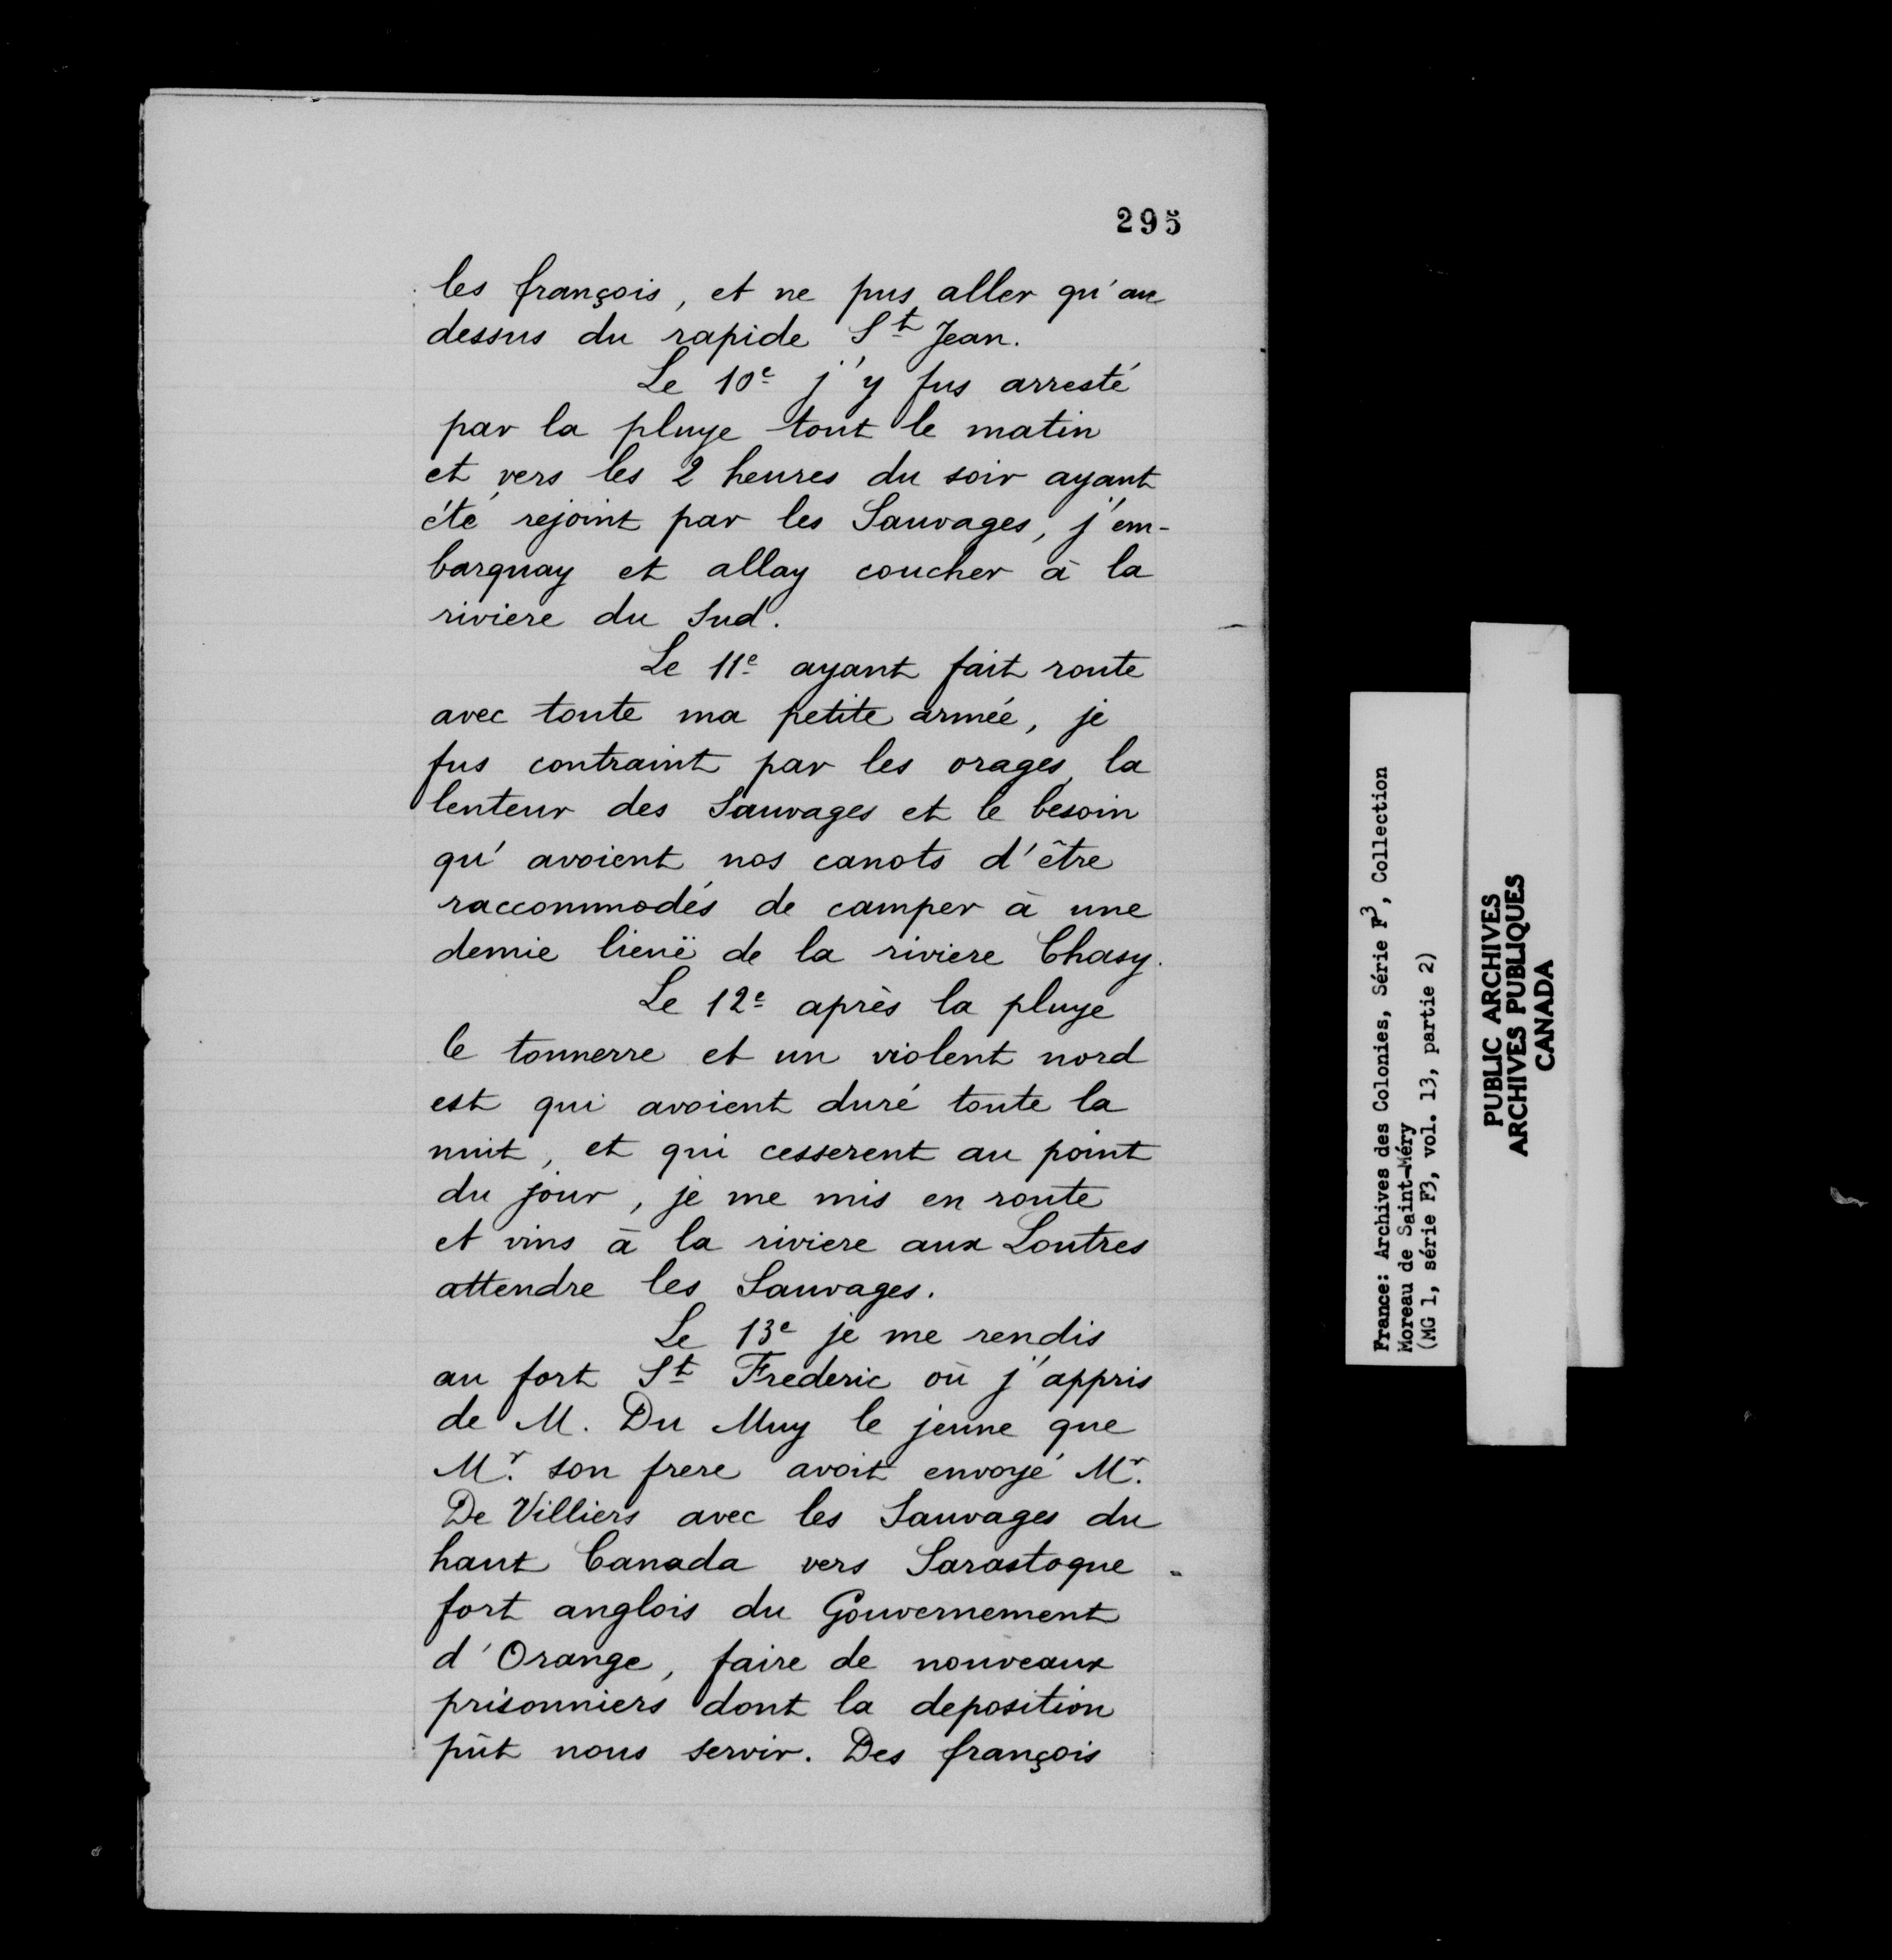 295
les françois, et ne pus aller qu'au
dessus du rapide St Jean.
Le 10e j'y fus arresté
par la pluye tout le matin
et vers les 2 heures du soir ayant
été rejoint par les Sauvages, j'em-
barquay et allay coucher à la
riviere du Sud.
Le 11e ayant fait route
avec toute ma petite armée, je
fus contraint par les orages, la
lenteur des Sauvages et le besoin
qu'avoient nos canots d'être
raccommodés de camper à une
demie lieuë de la riviere Chasy.
Le 12e après la pluye
le tonnerre et un violent nord
est qui avoient duré toute la
nuit, et qui cesserent au point
du jour, je me mis en route
et vins à la riviere aux Loutres
attendre les Sauvages.
Le 13e je me rendis
au fort St Frederic où j'appris
de M. Du Muy le jeune que
Mr. son frere avoit envoyé Mr.
De Villiers avec les Sauvages du
haut Canada vers Sarastogue
fort anglois du Gouvernement
d'Orange, faire de nouveaux
prisonniers dont la deposition
pût nous servir. Des françois
France: Archives des Colonies, Série F3, Collection
Moreau de Saint-Méry
(MG 1, série F3, vol. 13, partie 2)
PUBLIC ARCHIVES
ARCHIVES PUBLIQUES
CANADA